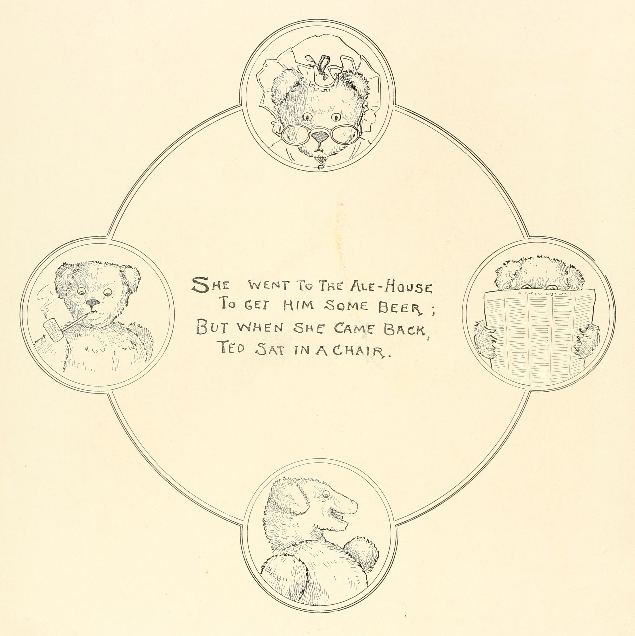 She went to the Ale-House
To get him some beer;
But when she came back,
Ted sat in a chair.